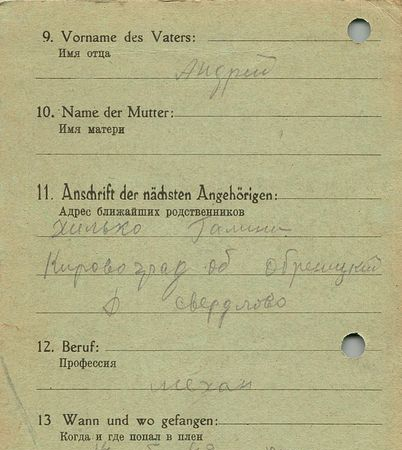 9. Vorname des Vaters:
Имя отца
Андрей
10. Name der Mutter:
Имя матери
11. Anschrift der nächsten Angehörigen:
Адрес ближайших родственников
Хилько Галини
Кировоград об
Свердлово
12. Beruf:
Профессия
механ
13 Wann und wo gefangen:
Когда и где попал в плен